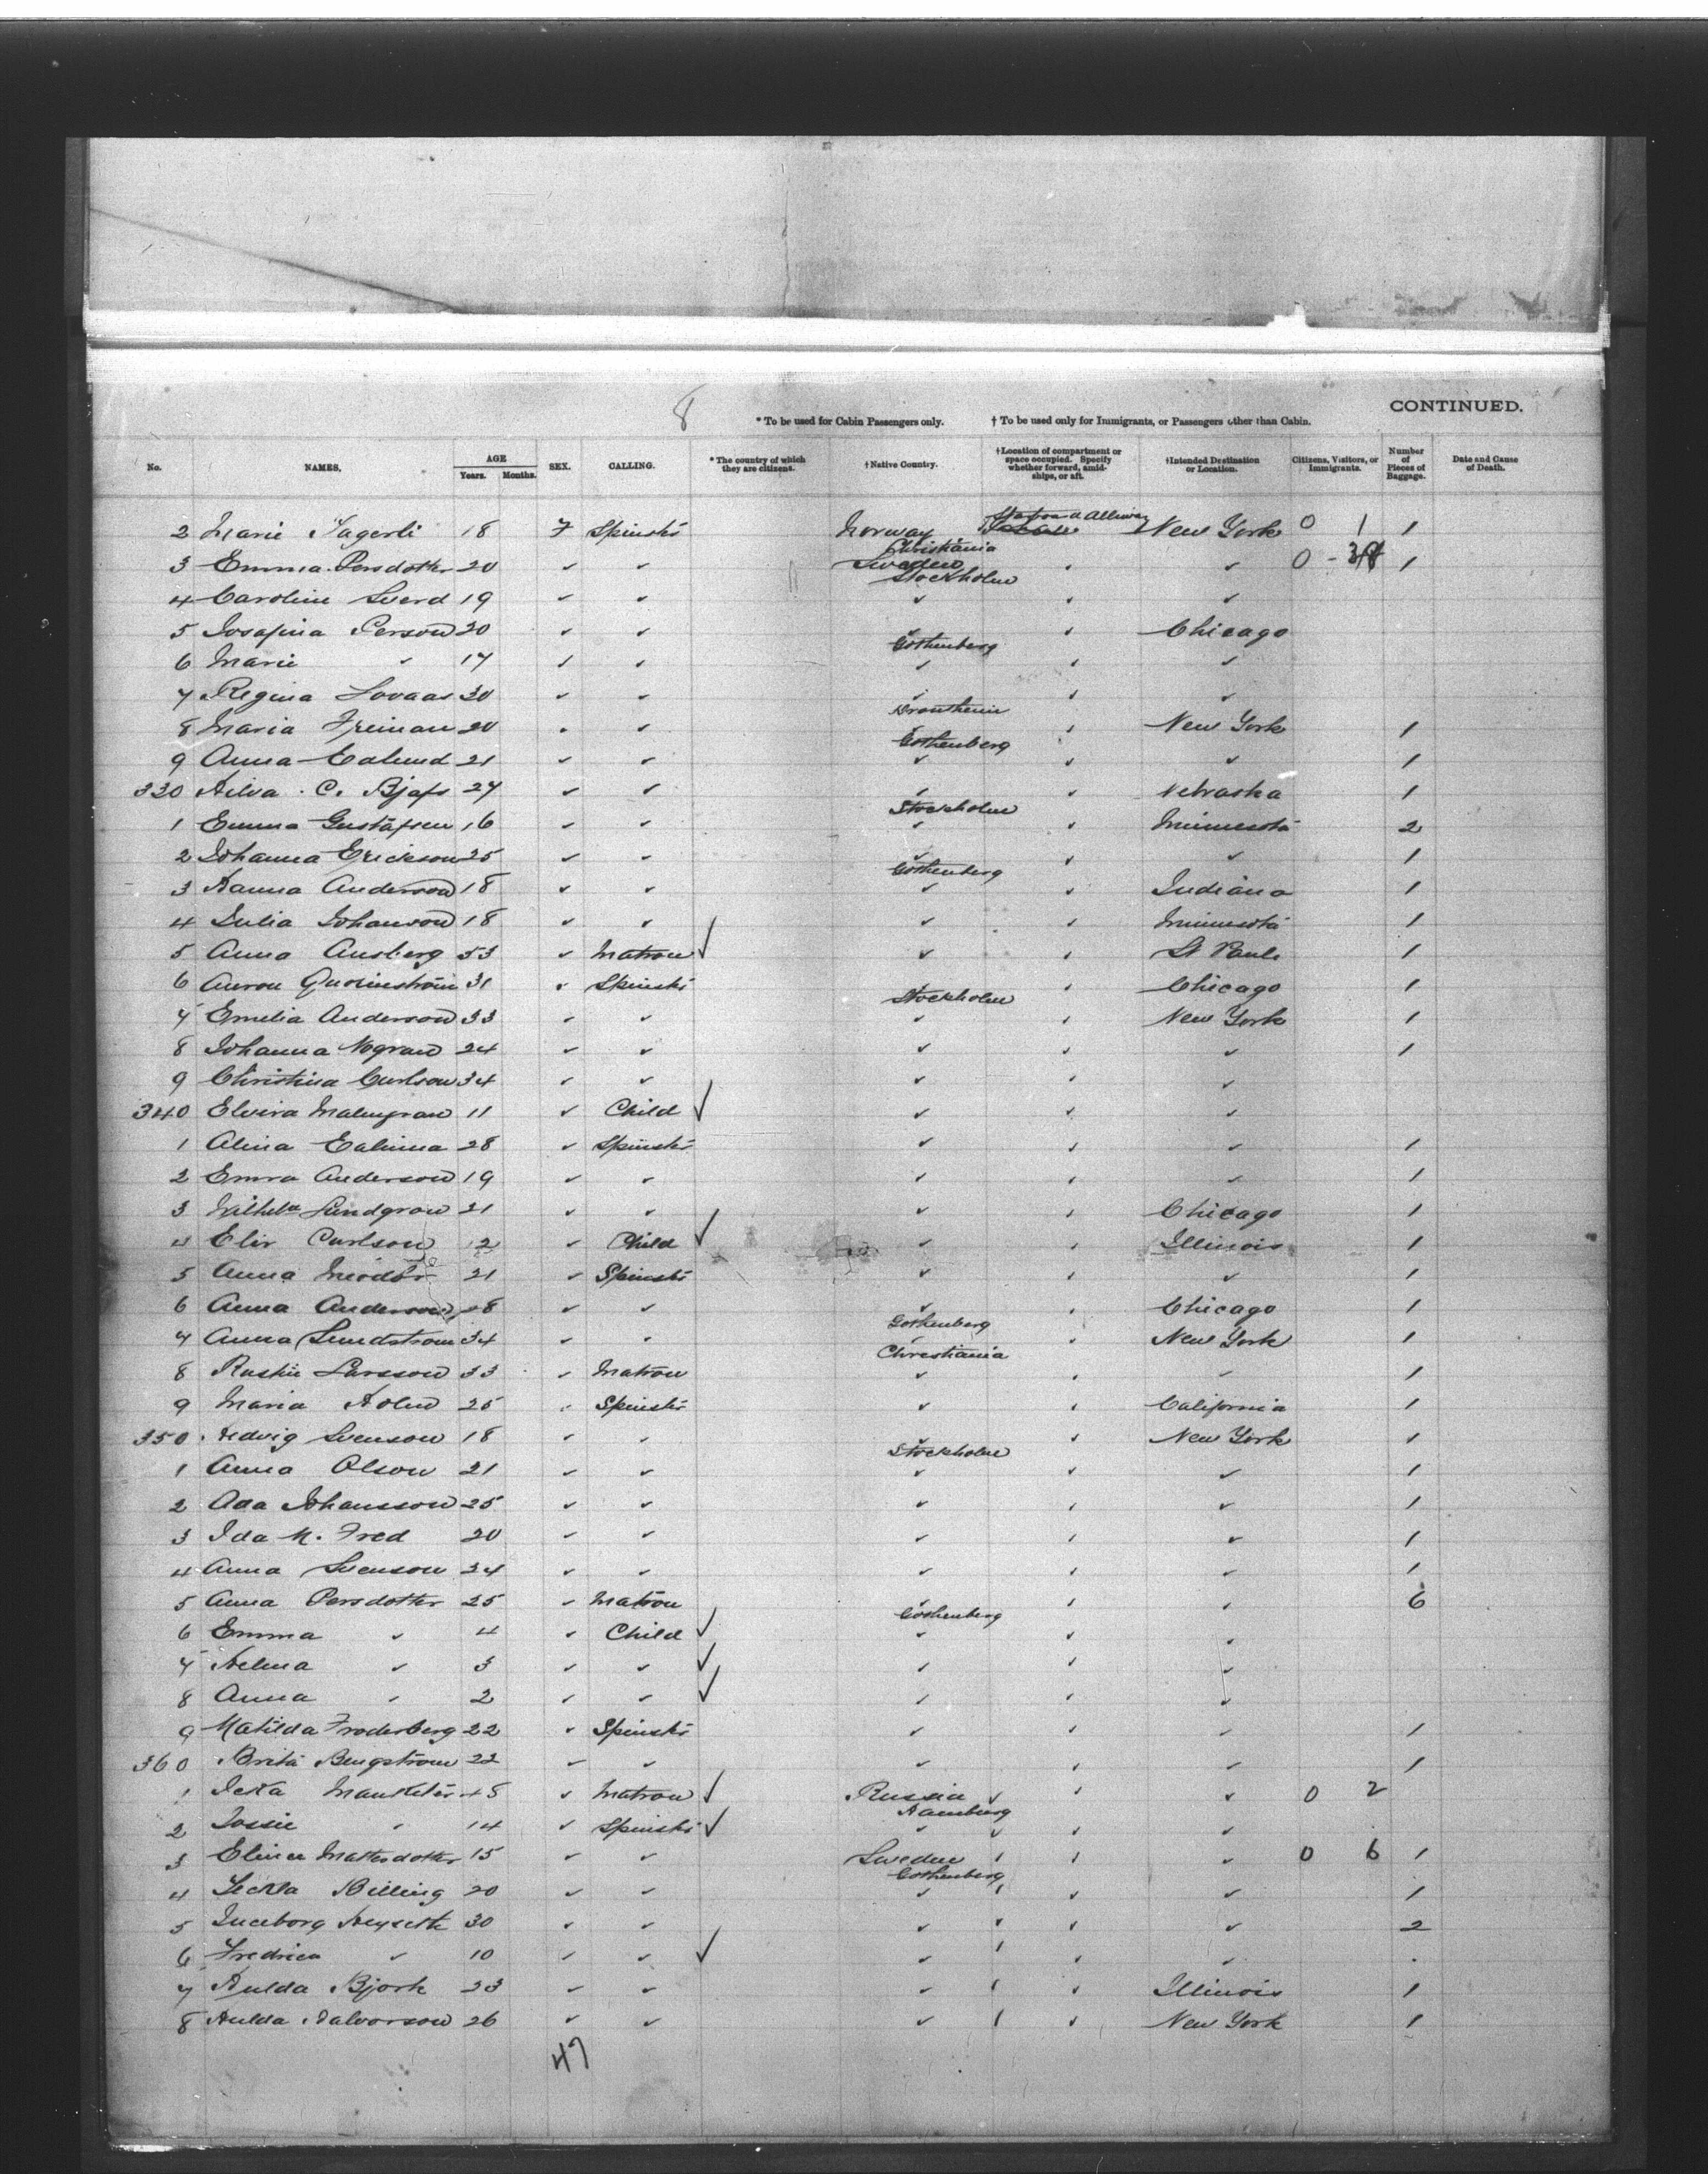 8
* To be used for Cabin Passengers only. † To be used only for Immigrants, or Passengers other than Cabin. CONTINUED.
No. NAMES. AGE Years. Months. SEX. CALLING. * The country of which they are citizens. † Native Country. † Location of compartment or space occupied. Specify whether forward, amidships, or aft. † Intended Destination or Location. Citizens, Visitors, or Immigrants. Number of Pieces of Baggage. Date and Cause of Death.
2 Marie Fagerli 18 F Spinstr Norway Christiania New York 0 1 1
3 Emma Persdotter 20 ✓ ✓ Sweden Stockholm ✓ ✓ 0 - 1
4 Caroline Sverd 19 ✓ ✓ ✓ ✓ ✓
5 Josafina Person 20 ✓ ✓ ✓ Gothenberg ✓ Chicago
6 Marie ✓ 17 ✓ ✓ ✓ ✓ ✓
7 Regina Lovaas 30 ✓ ✓ ✓ Drontheim ✓ ✓
8 Maria Freiman 20 ✓ ✓ Gothenberg ✓ New York 1
9 Anna Edlund 21 ✓ ✓ ✓ ✓ ✓ 1
330 C. 27 ✓ ✓ ✓ Stockholm ✓ Nebraska 1
1 Emma Gustafsen 16 ✓ ✓ ✓ ✓ Minnesota 2
2 Johanna Erickson 25 ✓ ✓ ✓ Gothenberg ✓ ✓ 1
3 Hanna Anderson 18 ✓ ✓ ✓ ✓ Indiana 1
4 Julia Johanson 18 ✓ ✓ ✓ ✓ ✓ Minnesota 1
5 Anna Ausberg 53 ✓ Matron ✓ ✓ ✓ St Pauls 1
6 31 ✓ Spinstr ✓ Stockholm ✓ Chicago 1
7 Emelia Anderson 33 ✓ ✓ ✓ ✓ New York 1
8 Johanna Nogran 24 ✓ ✓ ✓ ✓ ✓ 1
9 Christina Carlson 34 ✓ ✓ ✓ ✓ ✓
340 Elvira Malmgran 11 ✓ Child ✓ ✓ ✓ ✓
1 Alina 28 ✓ Spinstr ✓ ✓ ✓ 1
2 Emma Anderson 19 ✓ ✓ ✓ ✓ ✓ 1
3 Wilhela Lindgran 21 ✓ ✓ ✓ ✓ Chicago 1
4 Carlson ✓ Child ✓ ✓ ✓ Illinois 1
5 Anna 21 ✓ Spinstr ✓ ✓ ✓ 1
6 Anna Anderson ✓ ✓ ✓ Gothenberg ✓ Chicago 1
7 Anna Lundstrom 34 ✓ ✓ ✓ Christiania ✓ New York 1
8 Larsson 33 ✓ Matron ✓ ✓ ✓ 1
9 Maria Holm 25 ✓ Spinstr ✓ ✓ California 1
350 Hedvig Svenson 18 ✓ ✓ ✓ Stockholm ✓ New York 1
1 Anna Olson 21 ✓ ✓ ✓ ✓ ✓ 1
2 Ada Johansson 25 ✓ ✓ ✓ ✓ ✓ 1
3 Ida M. Fred 20 ✓ ✓ ✓ ✓ ✓ 1
4 Anna Svenson 24 ✓ ✓ ✓ ✓ ✓ 1
5 Anna Persdotter 25 ✓ Matron ✓ Gothenberg ✓ ✓ 6
6 Emma ✓ 4 ✓ Child ✓ ✓ ✓ ✓
7 Helma ✓ 3 ✓ ✓ ✓ ✓ ✓ ✓
8 Anna ✓ 2 ✓ ✓ ✓ ✓ ✓ ✓
9 Matilda Froderberg 22 ✓ Spinstr ✓ ✓ ✓ 1
360 Brita Bengstrom 22 ✓ ✓ ✓ ✓ ✓ 1
1 ✓ Matron ✓ Russia Hamburg ✓ ✓ ✓ 0 2
2 Jossie ✓ 14 ✓ Spinstr ✓ ✓ ✓ ✓ ✓
3 Mattesdotter 15 ✓ ✓ Sweden Gothenberg ✓ ✓ ✓ 0 6 1
4 Billing 20 ✓ ✓ ✓ ✓ ✓ ✓ 1
5 Ingeborg 30 ✓ ✓ ✓ ✓ ✓ ✓ 2
6 Fredrica ✓ 10 ✓ ✓ ✓ ✓ ✓ ✓ ✓
7 Hulda Bjork 23 ✓ ✓ ✓ ✓ ✓ Illinois 1
8 Hulda Halvorson 26 ✓ ✓ ✓ ✓ ✓ New York 1
47